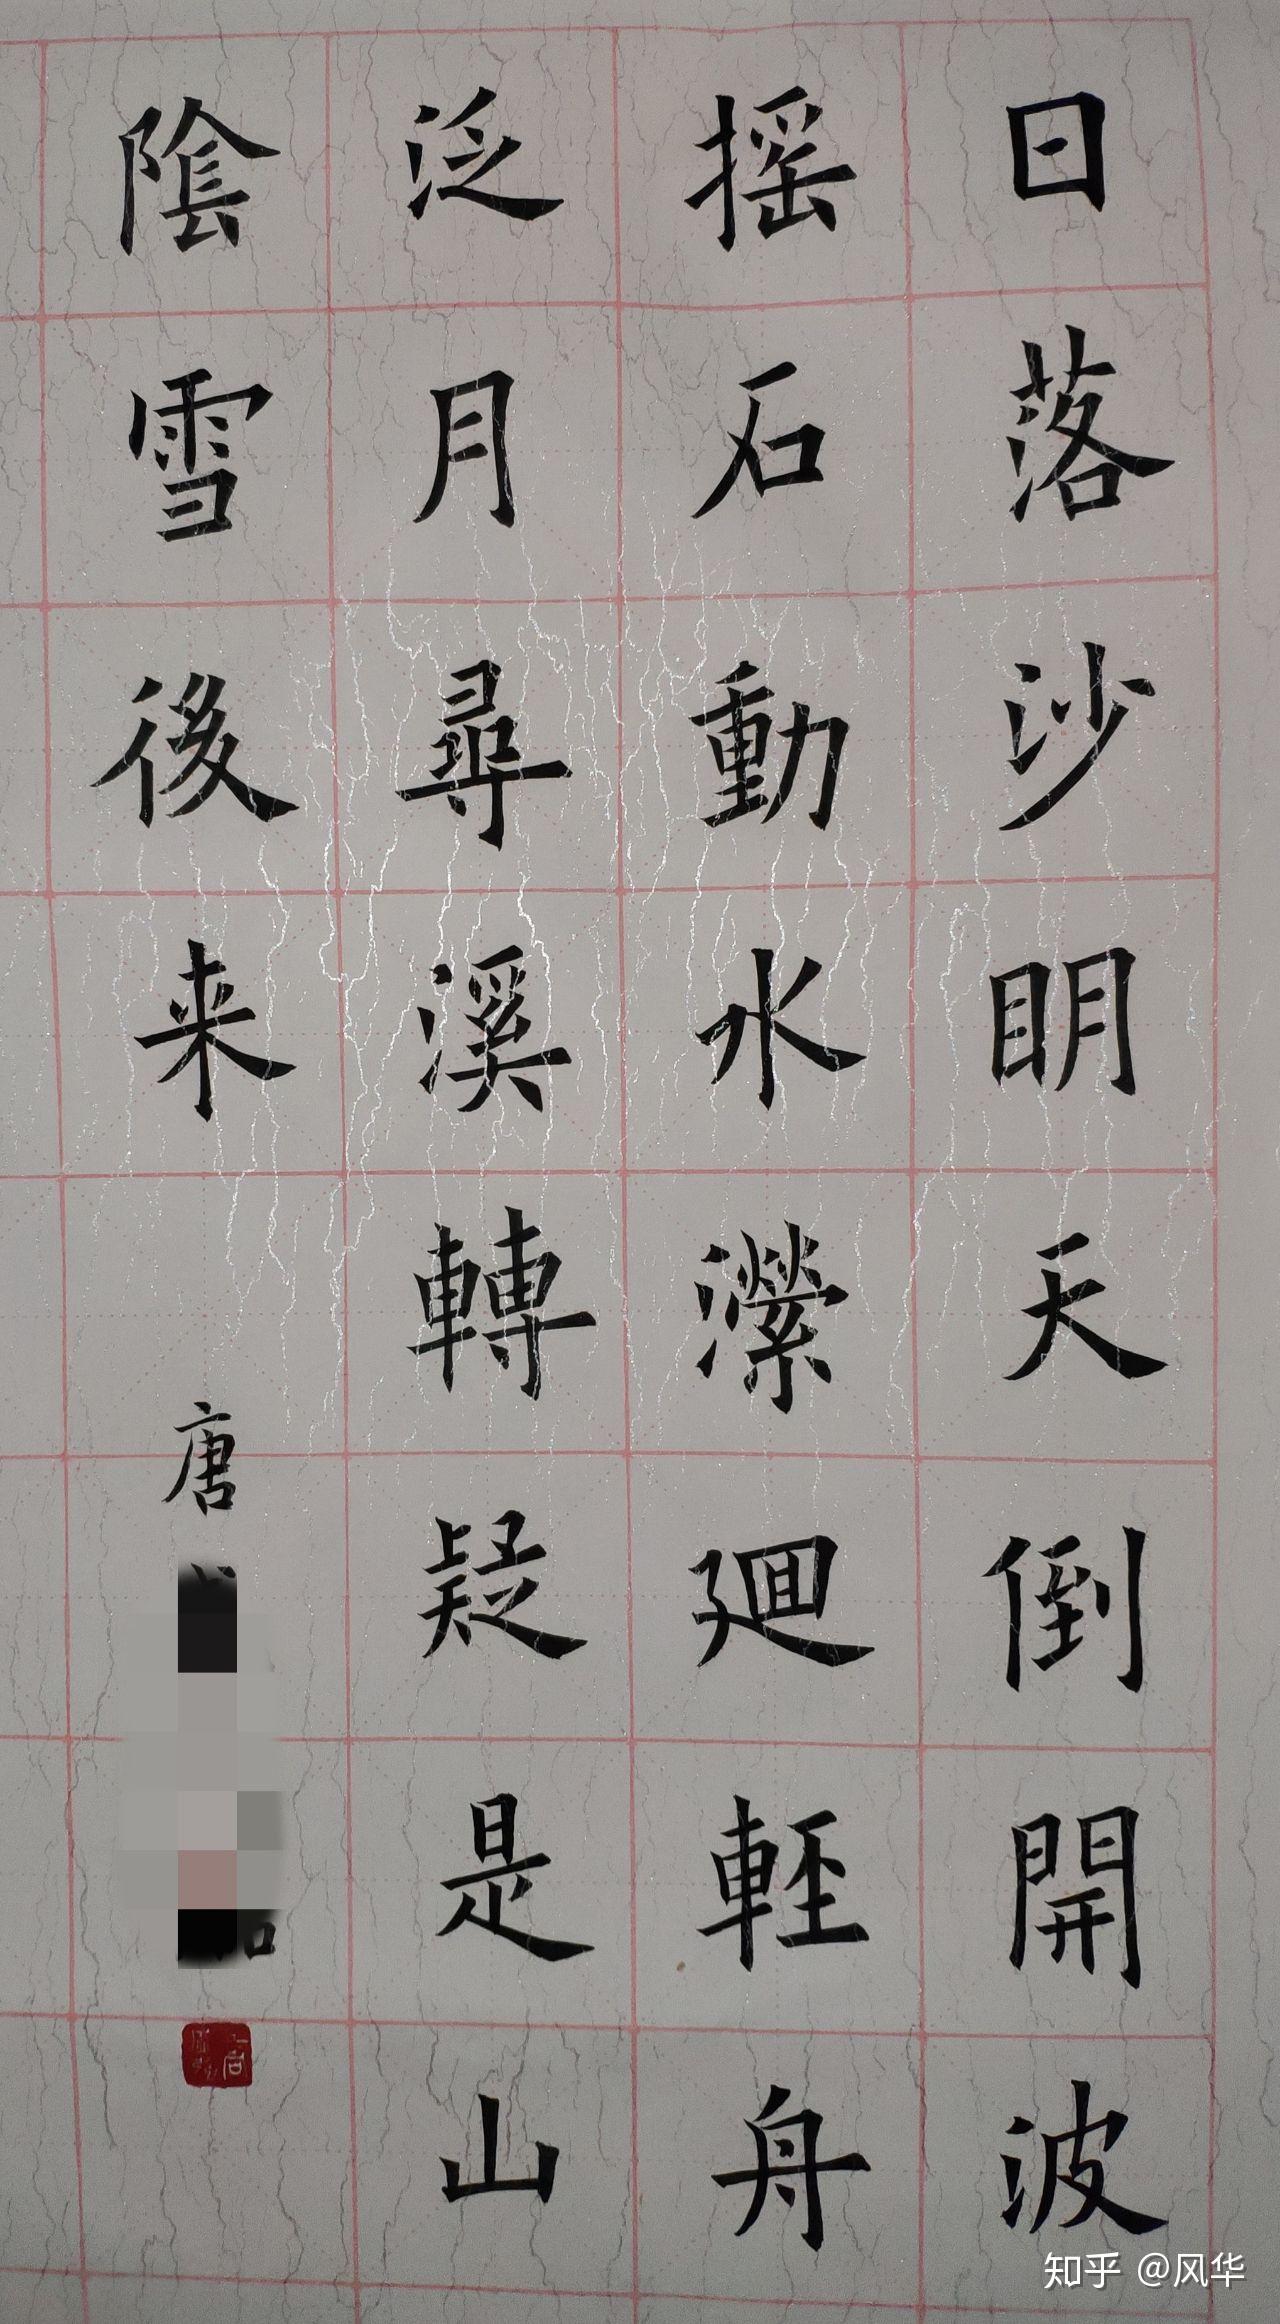 日落沙明天倒開波
摇石動水瀠廻軽舟
泛月尋溪轉疑是山
陰雪後来
唐
知乎 @风华